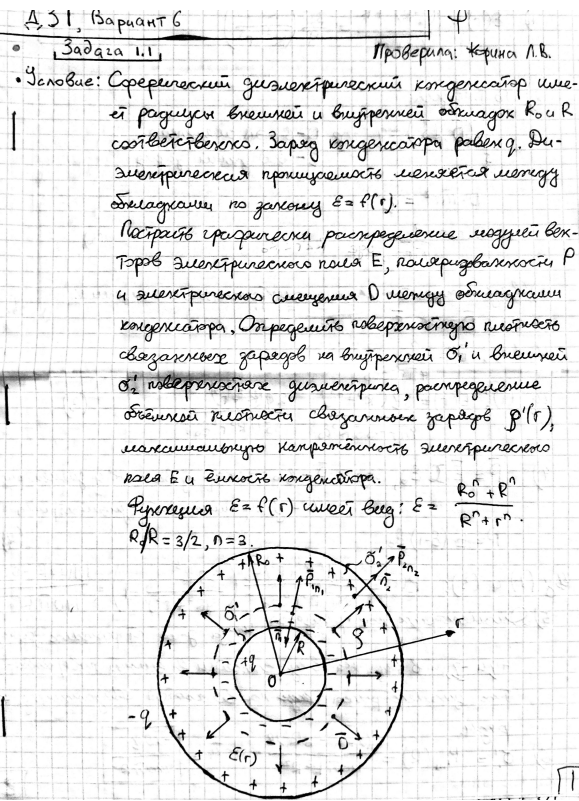 ДЗ1, Вариант 6
Задача 1.1
Проверила: Жорина Л.В.
• Условие: Сферический диэлектрический конденсатор име-
ет радиусы внешней и внутренней обкладок R₀ и R
соответственно. Заряд конденсатора равен q. Ди-
электрическая проницаемость меняется между
обкладками по закону ε=f(r).
Построить графически распределение модулей век-
торов электрического поля E, поляризованности P
и электрического смещения D между обкладками
конденсатора. Определить поверхностную плотность
связанных зарядов на внутренней σ₁' и внешней
σ₂' поверхностях диэлектрика, распределение
объёмной плотности связанных зарядов ρ'(r),
максимальную напряжённость электрического
поля E и ёмкость конденсатора.
Функция ε=f(r) имеет вид: ε = (R₀ⁿ + Rⁿ)/(Rⁿ + rⁿ).
R₀/R = 3/2, n=3.
R₀
P̄₁ₙ₁
σ₂'
P̄₂ₙ₂
n̄₂
σ₁'
n̄
R
ρ'
r
+q
O
-q
D̄
ε(r)
1